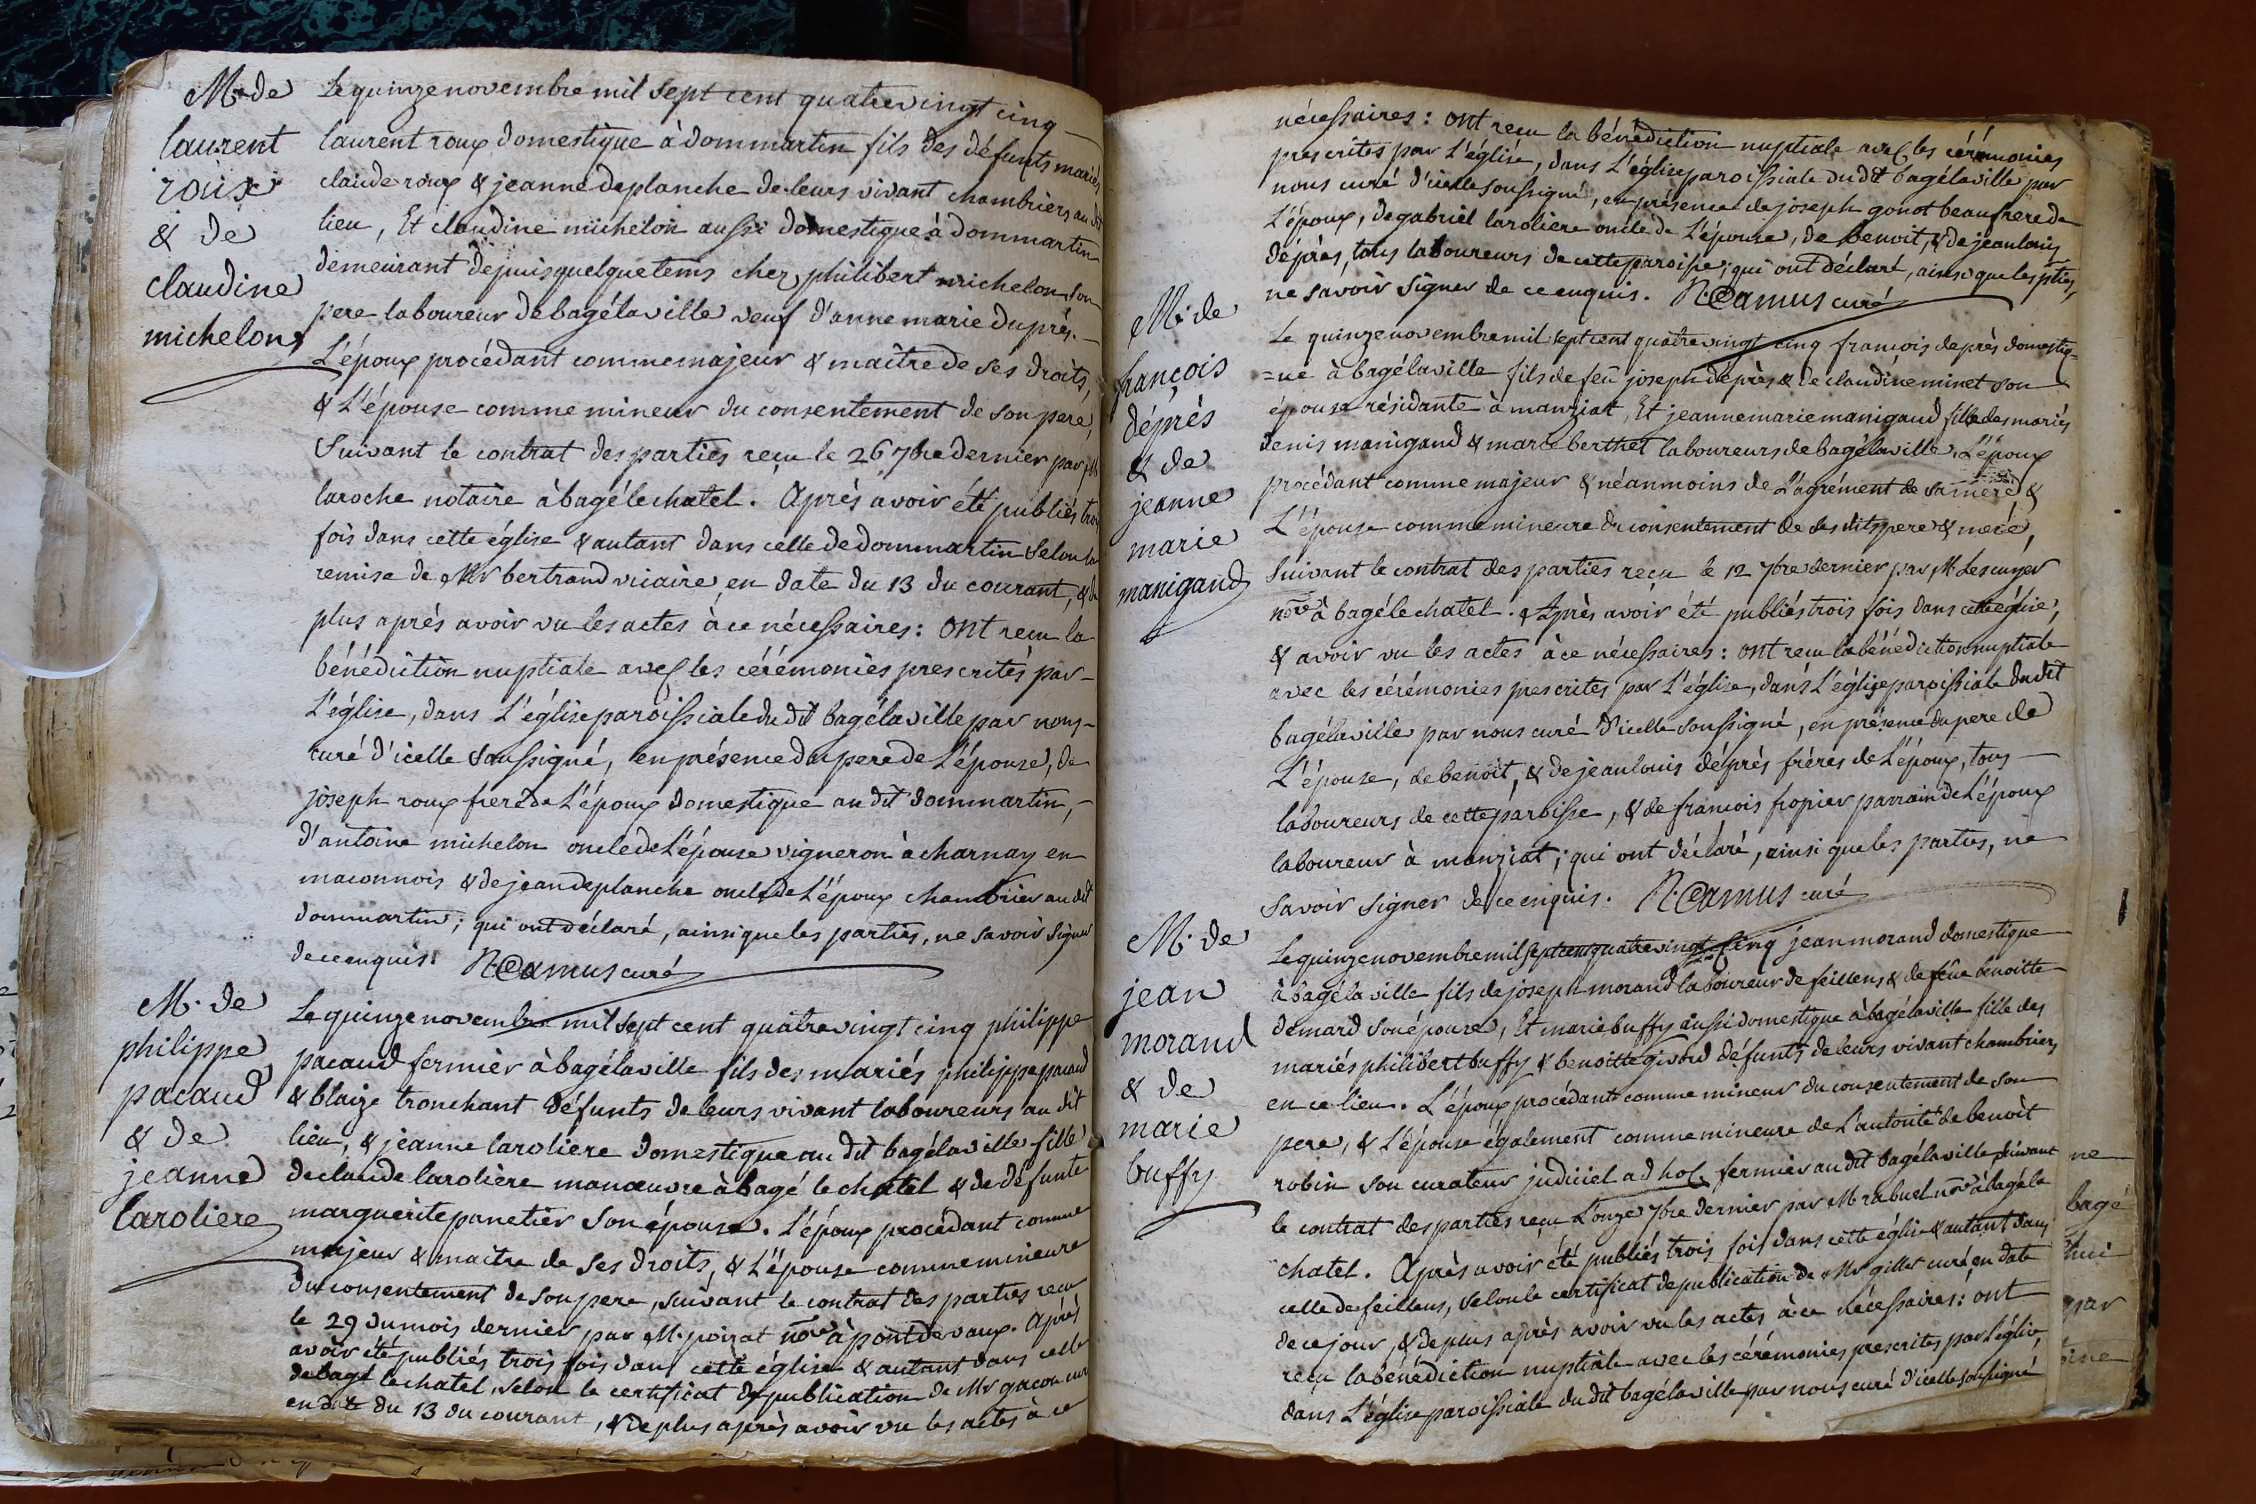 M. de
laurent
roux
& de
claudine
michelon
Le quinze novembre mil sept cent quatrevingt cinq
laurent roux domestique à dommartin fils des défunts mariés
claude roux & jeanne deplanche de leurs vivant chambriers au dit
lieu, Et claudine michelon aussi domestique à dommartin
demeurant depuis quelque tems chez philibert michelon son
pere laboureur de bagélaville veuf d'anne marie duprés.
L'époux procédant comme majeur & maitre de ses droits,
& L'épouse comme mineur du consentement de son pere,
Suivant le contrat des parties reçu le 26 7bre dernier par
laroche notaire à bagélechatel. Après avoir été publiés trois
fois dans cette église & autant dans celle de dommartin selon la
remise de Mr bertrand vicaire en date du 13 du courant, & de
plus après avoir vu les actes à ce nécessaires: ont reçu la
bénédiction nuptiale avec les cérémonies prescrites par
L'église, dans L'église paroissiale du dit bagélaville par nous
curé d'icelle soussigné, en présence du pere de L'épouse, de
joseph roux frere de L'époux domestique au dit dommartin,
d'antoine michelon oncle de L'épouse vigneron à charnay en
maconnois & de jean deplanche oncle de L'époux chambrier au dit
dommartin; qui ont déclaré, ainsi que les parties, ne savoir signer
de ce enquis. N. Camus curé
M. de
philippe
pacaud
& de
jeanne
laroliere
Le quinze novembre mil sept cent quatre vingt cinq philippe
pacaud fermier à bagélaville fils des mariés philippe pacaud
& blaize tronchant défunts de leurs vivant laboureurs au dit
lieu, & jeanne laroliere domestique au dit bagélaville fille
de claude laroliere manœuvre à bagé le chatel & de défunte
marguerite panetier son épouse. L'époux procédant comme
majeur & maitre de ses droits, & L'épouse comme mineure
du consentement de son pere, suivant le contrat des parties reçu
le 29 du mois dernier par M. poizat nore à pontdevaux. Après
avoir été publiés trois fois dans cette église & autant dans celle
de bagé lechatel, selon le certificat de publication de Mr gacon curé
en date du 13 du courant, & de plus après avoir vu les actes à ce
nécessaires: ont reçu la bénédiction nuptiale avec les cérémonies
prescrites par L'église, dans L'église paroissiale du dit bagélaville par
nous curé d'icelle soussigné, en présence de joseph gonot beaufrere de
L'époux, de gabriel laroliere oncle de L'épouse, de benoit, & de jean louis
déprès, tous laboureurs de cette paroisse; qui ont déclaré, ainsi que les pties,
ne savoir signer de ce enquis. N. Camus curé
M. de
françois
déprés
& de
jeanne
marie
manigaud
Le quinze novembre mil sept cent quatre vingt cinq francois deprès domestiq-
=ue à bagélaville fils de feû joseph déprès & de claudine minet son
épouse résidante à manziat, Et jeanne marie manigaud fille des mariés
denis manigaud & marie berthet laboureurs de bagélaville. L'époux
procédant comme majeur & néanmoins de L'agrément de sa mere, &
L'épouse comme mineure du consentement de ses dits pere & mere,
Suivant le contrat des parties reçu le 12 7bre dernier par M. Lescuyer
nore à bagélechatel. & Après avoir été publiés trois fois dans cette église,
& avoir vu les actes à ce nécessaires: ont reçu la bénédiction nuptiale
avec les cérémonies prescrites par L'église, dans L'église paroissiale du dit
bagélaville par nous curé d'icelle soussigné, en présence du pere de
L'épouse, de benoit, & de jean louis déprès fréres de L'époux, tous
laboureurs de cette paroisse, & de francois fropier parrain de L'époux
laboureur à manziat; qui ont déclaré, ainsi que les parties, ne
savoir signer de ce enquis. N. Camus curé
M. de
jean
morand
& de
marie
buffy
Le quinze novembre mil sept cens quatre vingt cinq jean morand domestique
à bagélaville fils de joseph morand laboureur de feillens & de feüe benoitte
demard son épouse, Et marie buffy aussi domestique à bagélaville fille des
mariés philibert buffy & benoitte givord défunts de leurs vivant chambriers
en ce lieu. L'époux procédant comme mineur du consentement de son
pere, & L'épouse également comme mineure de L'autorité de benoit
robin son curateur judiciel ad hoc fermier au dit bagélaville suivant
le contrat des parties reçu L'onze 7bre dernier par M. rabuel nore à bagéle
chatel. Après avoir été publiés trois fois dans cette église & autant dans
celle de feillens, selon le certificat de publication de Mr gillet curé en date
de ce jour, & de plus après avoir vu les actes à ce nécessaires: ont
reçu la bénédiction nuptiale avec les cérémonies prescrites par L'église,
dans L'église paroissiale du dit bagélaville par nous curé d'icelle soussigné
ne
bagé
par